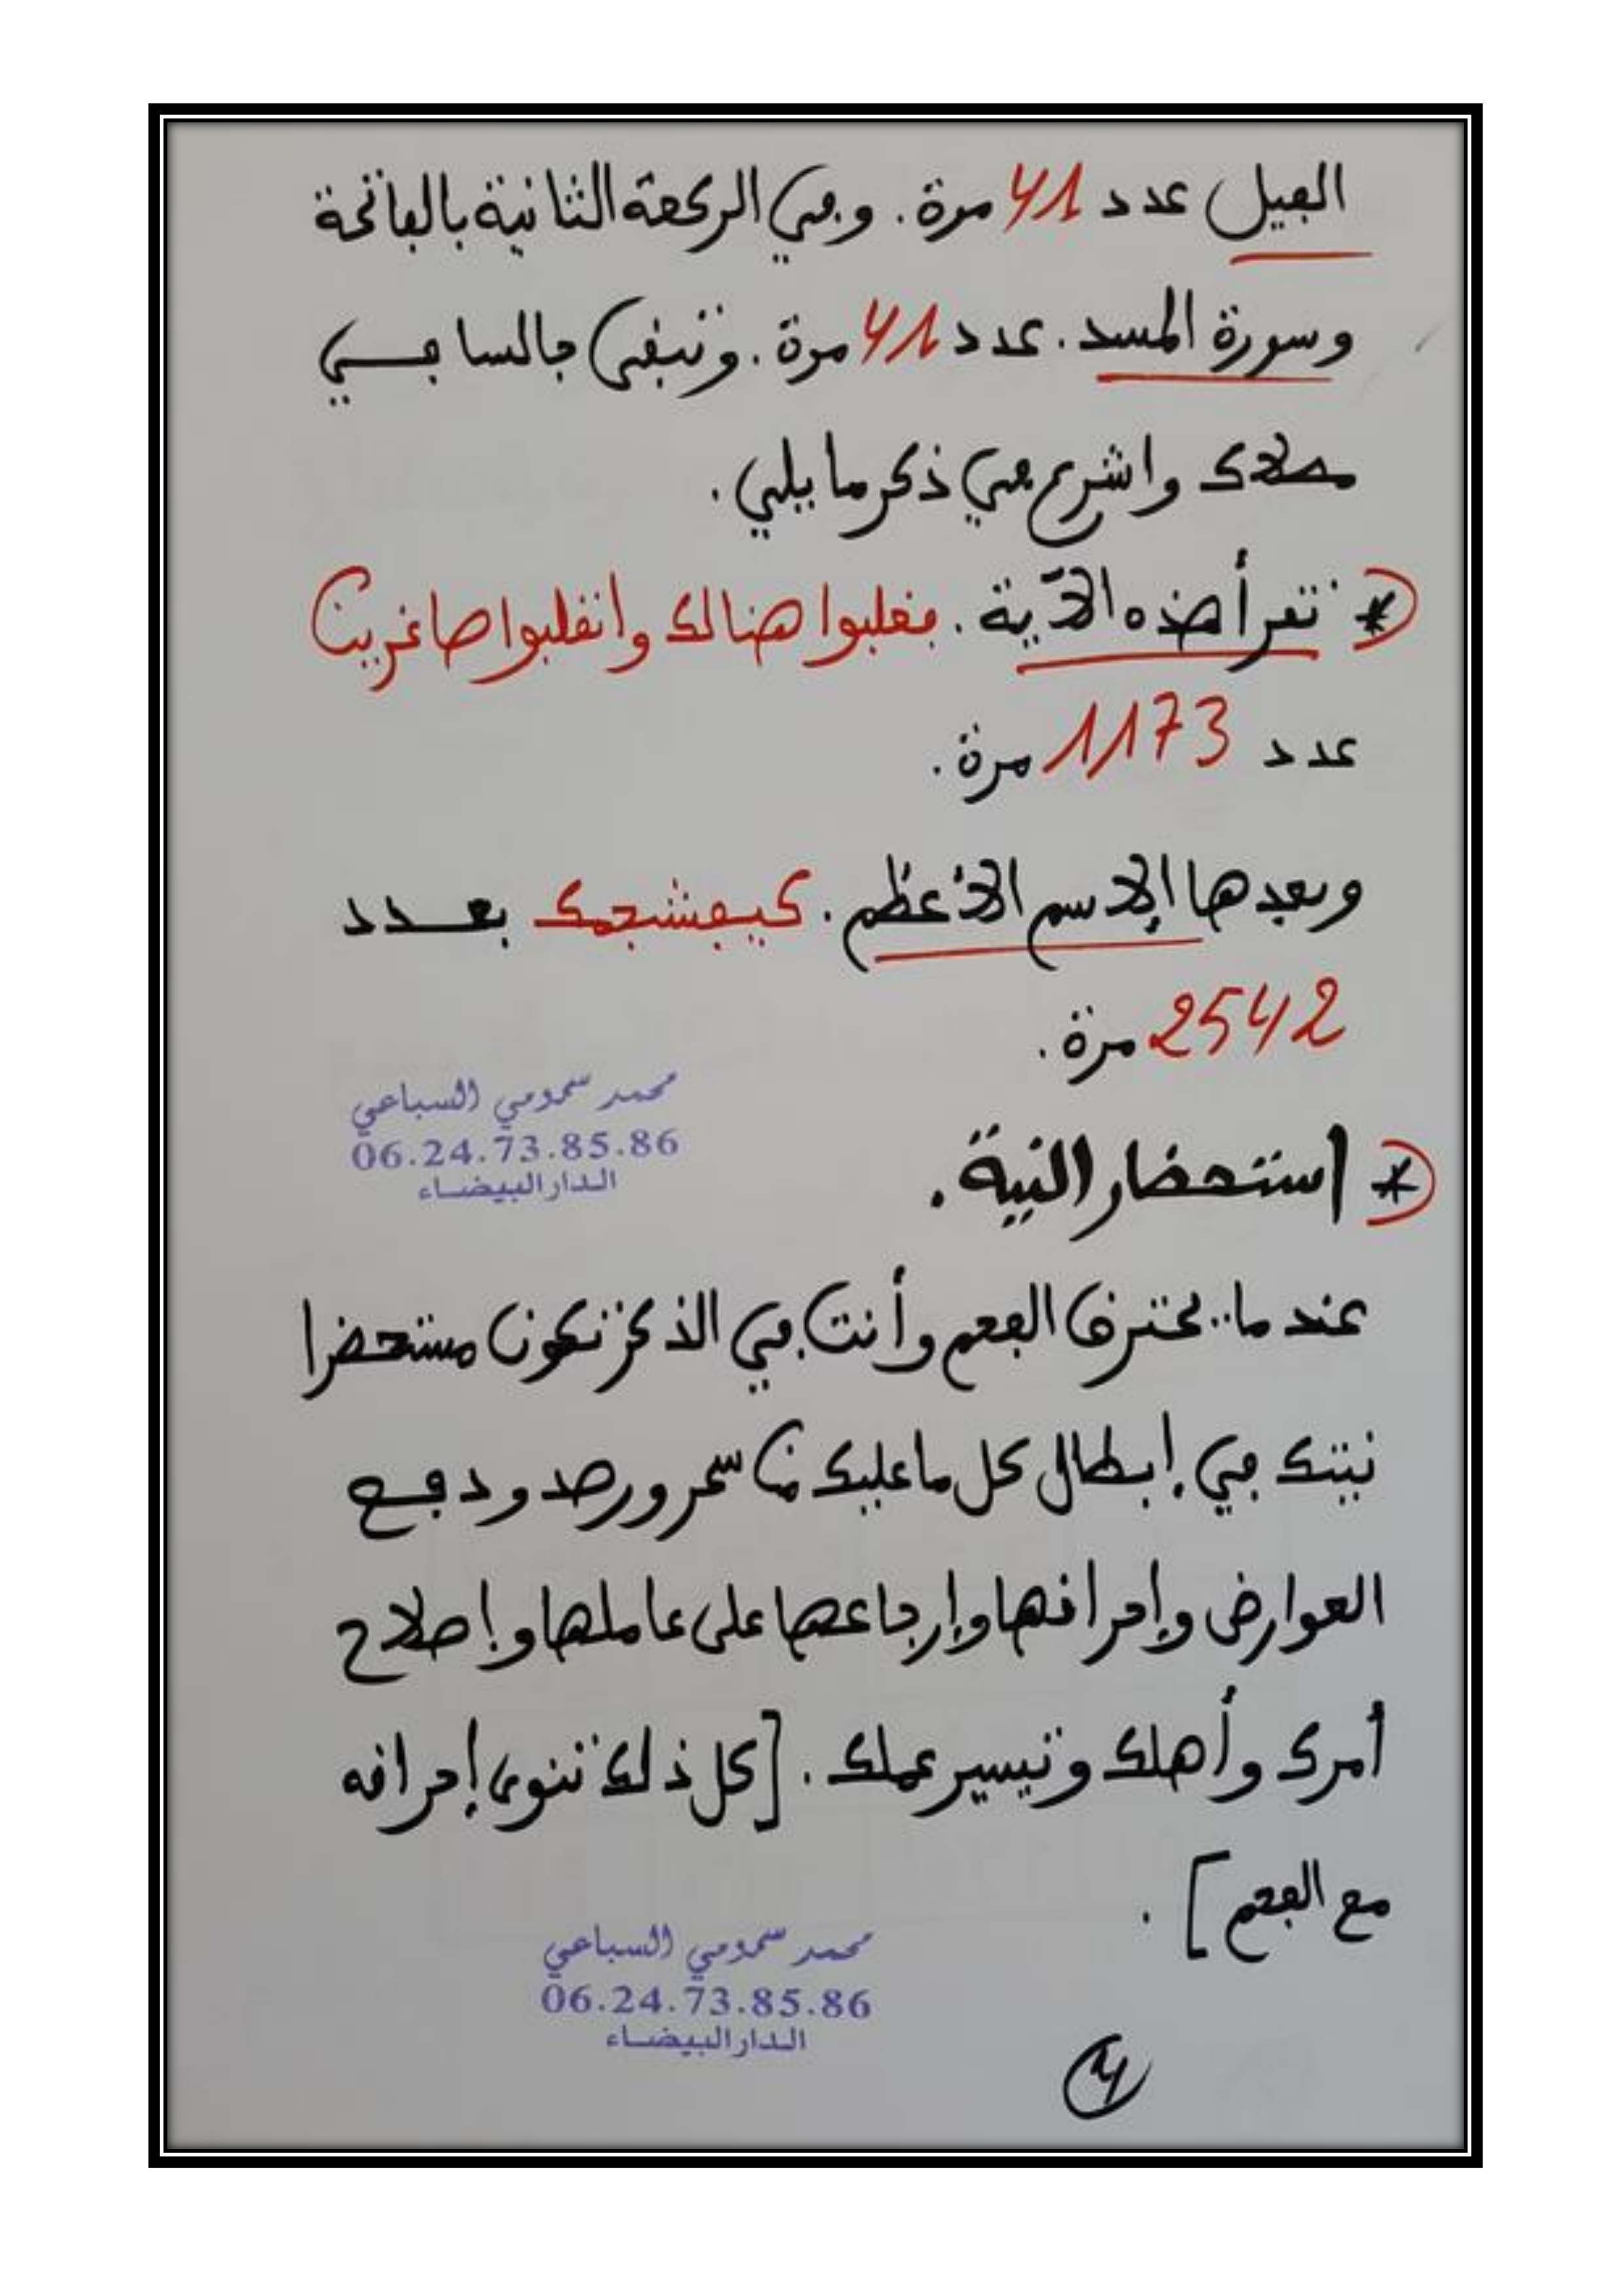 الفيل عدد 41 مرة . وفي الركعة الثانية بالفاتحة
وسورة المسد . عدد 41 مرة . وتبقى جالسا في
مكانك واشرع في ذكر ما يلي .
* تقرأ هذه الآية . فغلبوا هنالك وانقلبوا صاغرين
عدد 1173 مرة .
وبعدها الإسم الأعظم . بعدد
2542 مرة .
محمد سمومي السباعي
06.24.73.85.86
الدار البيضاء
* استحضار النية .
عندما يحترق الفحم وأنت في الذكر تكون مستحضرا
نيتك في إبطال كل ما عليك من سحر ورصد ودفع
العوارض وإحراقها وإرجاعها على عاملها وإصلاح
أمرك وأهلك وتيسير عملك . [كل ذلك تنوي إحراقه
مع الفحم] .
محمد سمومي السباعي
06.24.73.85.86
الدار البيضاء
4